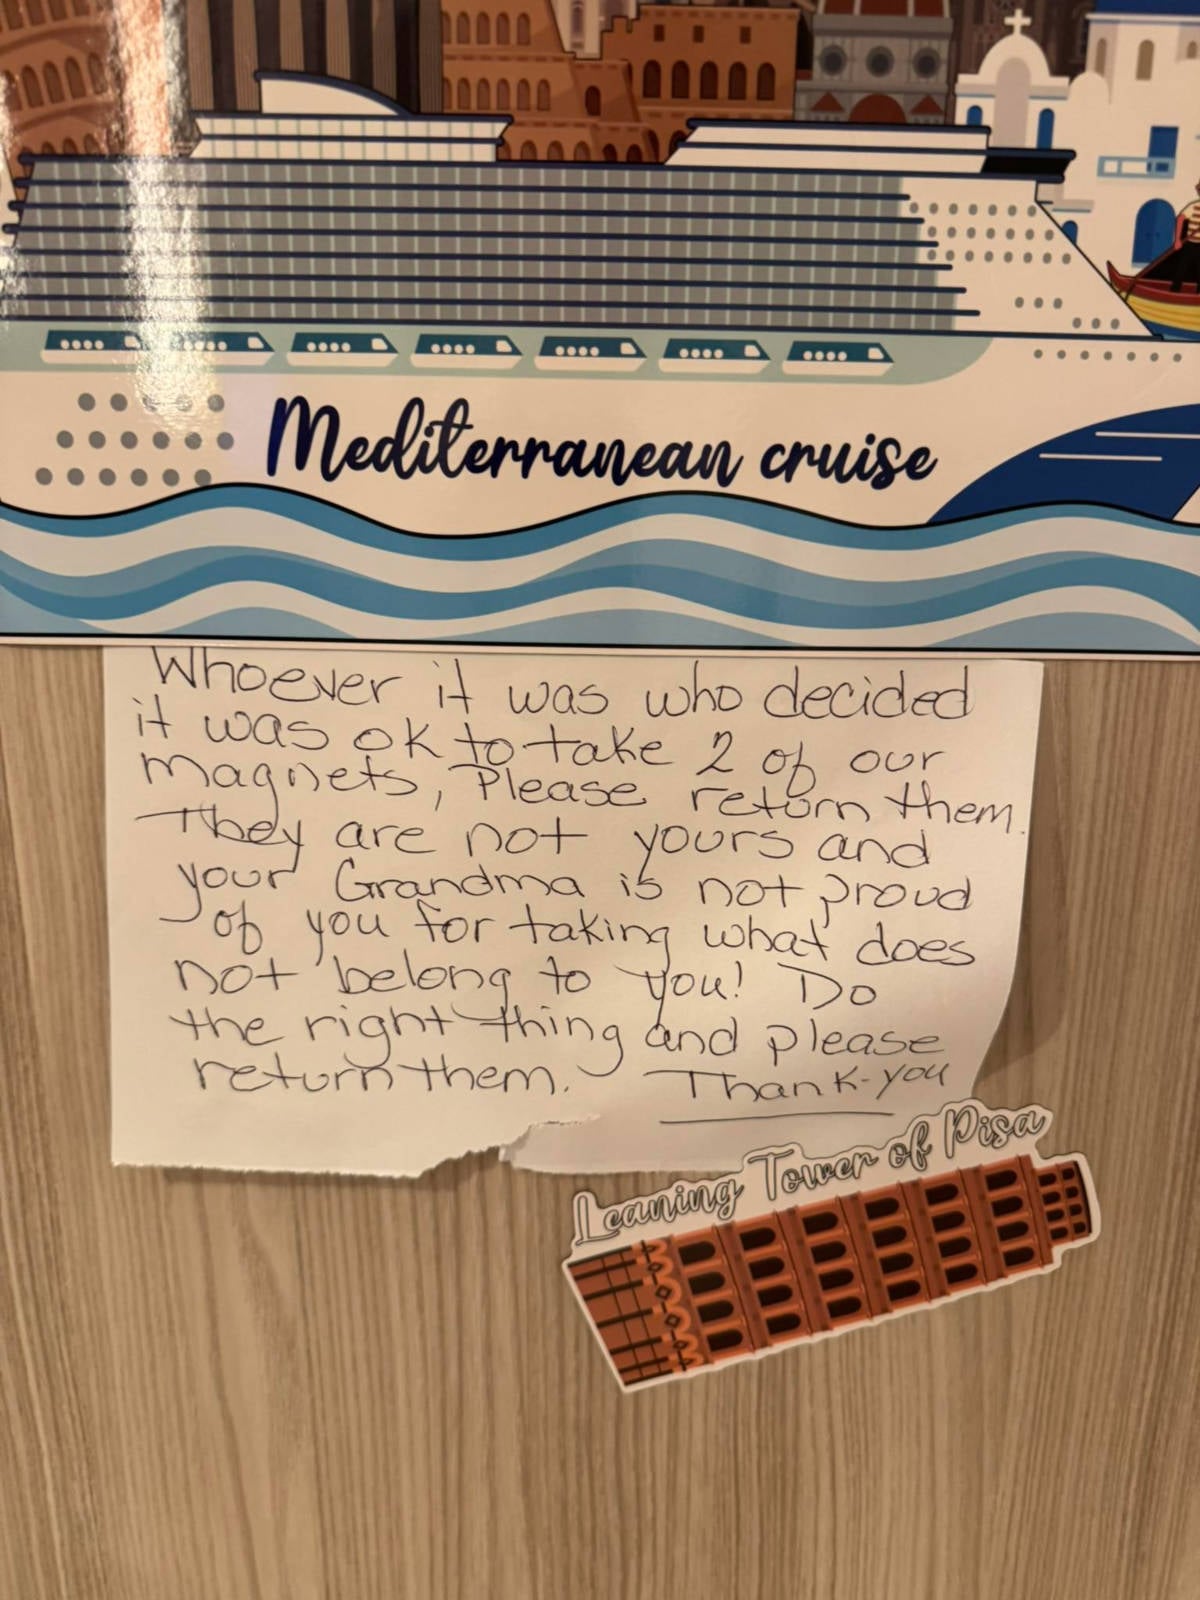 Mediterranean cruise
Whoever it was who decided
it was ok to take 2 of our
magnets, Please return them.
They are not yours and
your Grandma is not proud
of you for taking what does
not belong to you! Do
the right thing and please
return them. Thank-you
Leaning Tower of Pisa